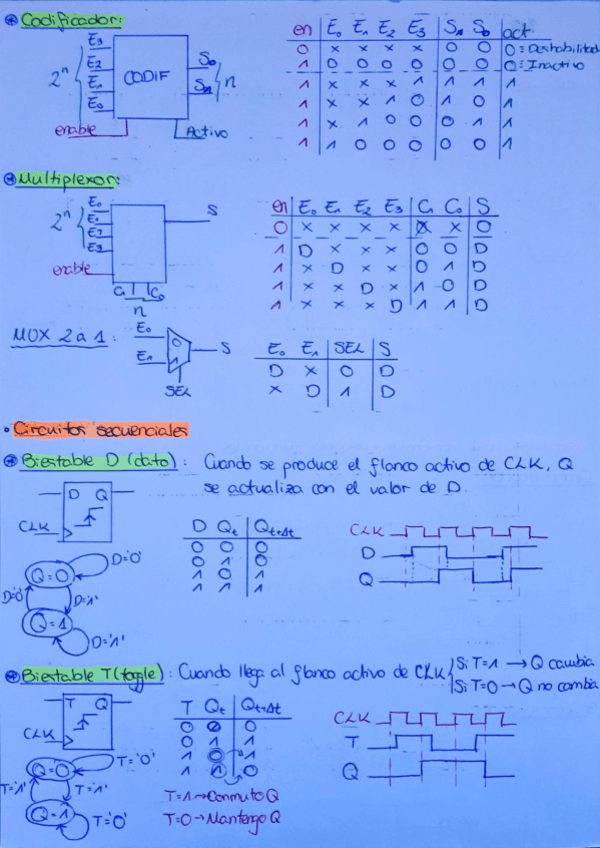 Codificador:
E3
E2
E1
E0
2^n
CODIF
S0
S1
n
enable
Activo
en E0 E1 E2 E3 S1 S0 act
0 x x x x 0 0 0 = Deshabilitad
1 0 0 0 0 0 0 0 = Inactivo
1 x x x 1 1 1 1
1 x x 1 0 1 0 1
1 x 1 0 0 0 1 1
1 1 0 0 0 0 0 1
Multiplexor:
E0
E1
E2
E3
2^n
S
enable
C1 C0
n
en E0 E1 E2 E3 C1 C0 S
0 x x x x x x 0
1 D x x x 0 0 D
1 x D x x 0 1 D
1 x x D x 1 0 D
1 x x x D 1 1 D
MUX 2 a 1:
E0
E1
0
1
S
SEL
E0 E1 SEL S
D x 0 D
x D 1 D
• Circuitos secuenciales
Biestable D (dato): Cuando se produce el flanco activo de CLK, Q
se actualiza con el valor de D.
D Q
CLK
Q=0
D='0'
D='0'
D='1'
Q=1
D='1'
D Qt Qt+Δt
0 0 0
0 1 0
1 0 1
1 1 1
CLK
D
Q
Biestable T (toggle): Cuando llega al flanco activo de CLK
Si T=1 → Q cambia
Si T=0 → Q no cambia
T Q
CLK
Q=0
T='0'
T='1'
T='1'
Q=1
T='0'
T Qt Qt+Δt
0 0 0
0 1 1
1 0 1
1 1 0
T=1 → Conmuto Q
T=0 → Mantengo Q
CLK
T
Q